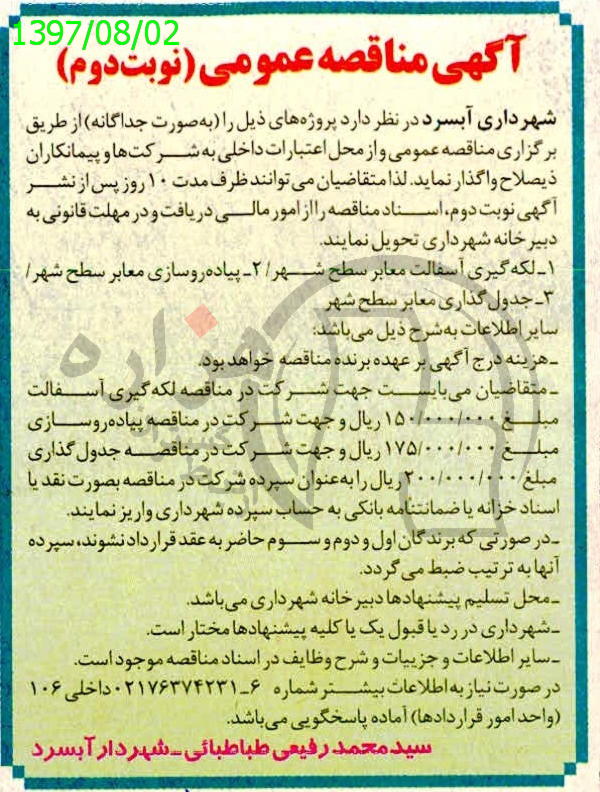 1397/08/02
آگهی مناقصه عمومی (نوبت دوم)
شهرداری آبسرد در نظر دارد پروژه‌های ذیل را (به‌صورت جداگانه) از طریق
برگزاری مناقصه عمومی و از محل اعتبارات داخلی به شرکت‌ها و پیمانکاران
ذیصلاح واگذار نماید. لذا متقاضیان می‌توانند ظرف مدت ۱۰ روز پس از نشر
آگهی نوبت دوم، اسناد مناقصه را از امور مالی دریافت و در مهلت قانونی به
دبیرخانه شهرداری تحویل نمایند.
۱ـ لکه‌گیری آسفالت معابر سطح شهر/ ۲ـ پیاده‌روسازی معابر سطح شهر/
۳ـ جدول گذاری معابر سطح شهر
سایر اطلاعات به‌شرح ذیل می‌باشد:
ـ هزینه درج آگهی بر عهده برنده مناقصه خواهد بود.
ـ متقاضیان می‌بایست جهت شرکت در مناقصه لکه‌گیری آسفالت
مبلغ ۱۵۰/۰۰۰/۰۰۰ ریال و جهت شرکت در مناقصه پیاده‌روسازی
مبلغ ۱۷۵/۰۰۰/۰۰۰ ریال و جهت شرکت در مناقصه جدول گذاری
مبلغ ۲۰۰/۰۰۰/۰۰۰ ریال را به‌عنوان سپرده شرکت در مناقصه بصورت نقد یا
اسناد خزانه یا ضمانتنامه بانکی به حساب سپرده شهرداری واریز نمایند.
ـ در صورتی که برندگان اول و دوم و سوم حاضر به عقد قرارداد نشوند، سپرده
آنها به ترتیب ضبط می گردد.
ـ محل تسلیم پیشنهادها دبیرخانه شهرداری می‌باشد.
ـ شهرداری در رد یا قبول یک یا کلیه پیشنهادها مختار است.
ـ سایر اطلاعات و جزییات و شرح وظایف در اسناد مناقصه موجود است.
در صورت نیاز به اطلاعات بیشتر شماره ۶ـ۰۲۱۷۶۳۷۴۲۳۱ داخلی ۱۰۶
(واحد امور قراردادها) آماده پاسخگویی می‌باشد.
سیدمحمد رفیعی طباطبائی ـ شهردار آبسرد
هزاره